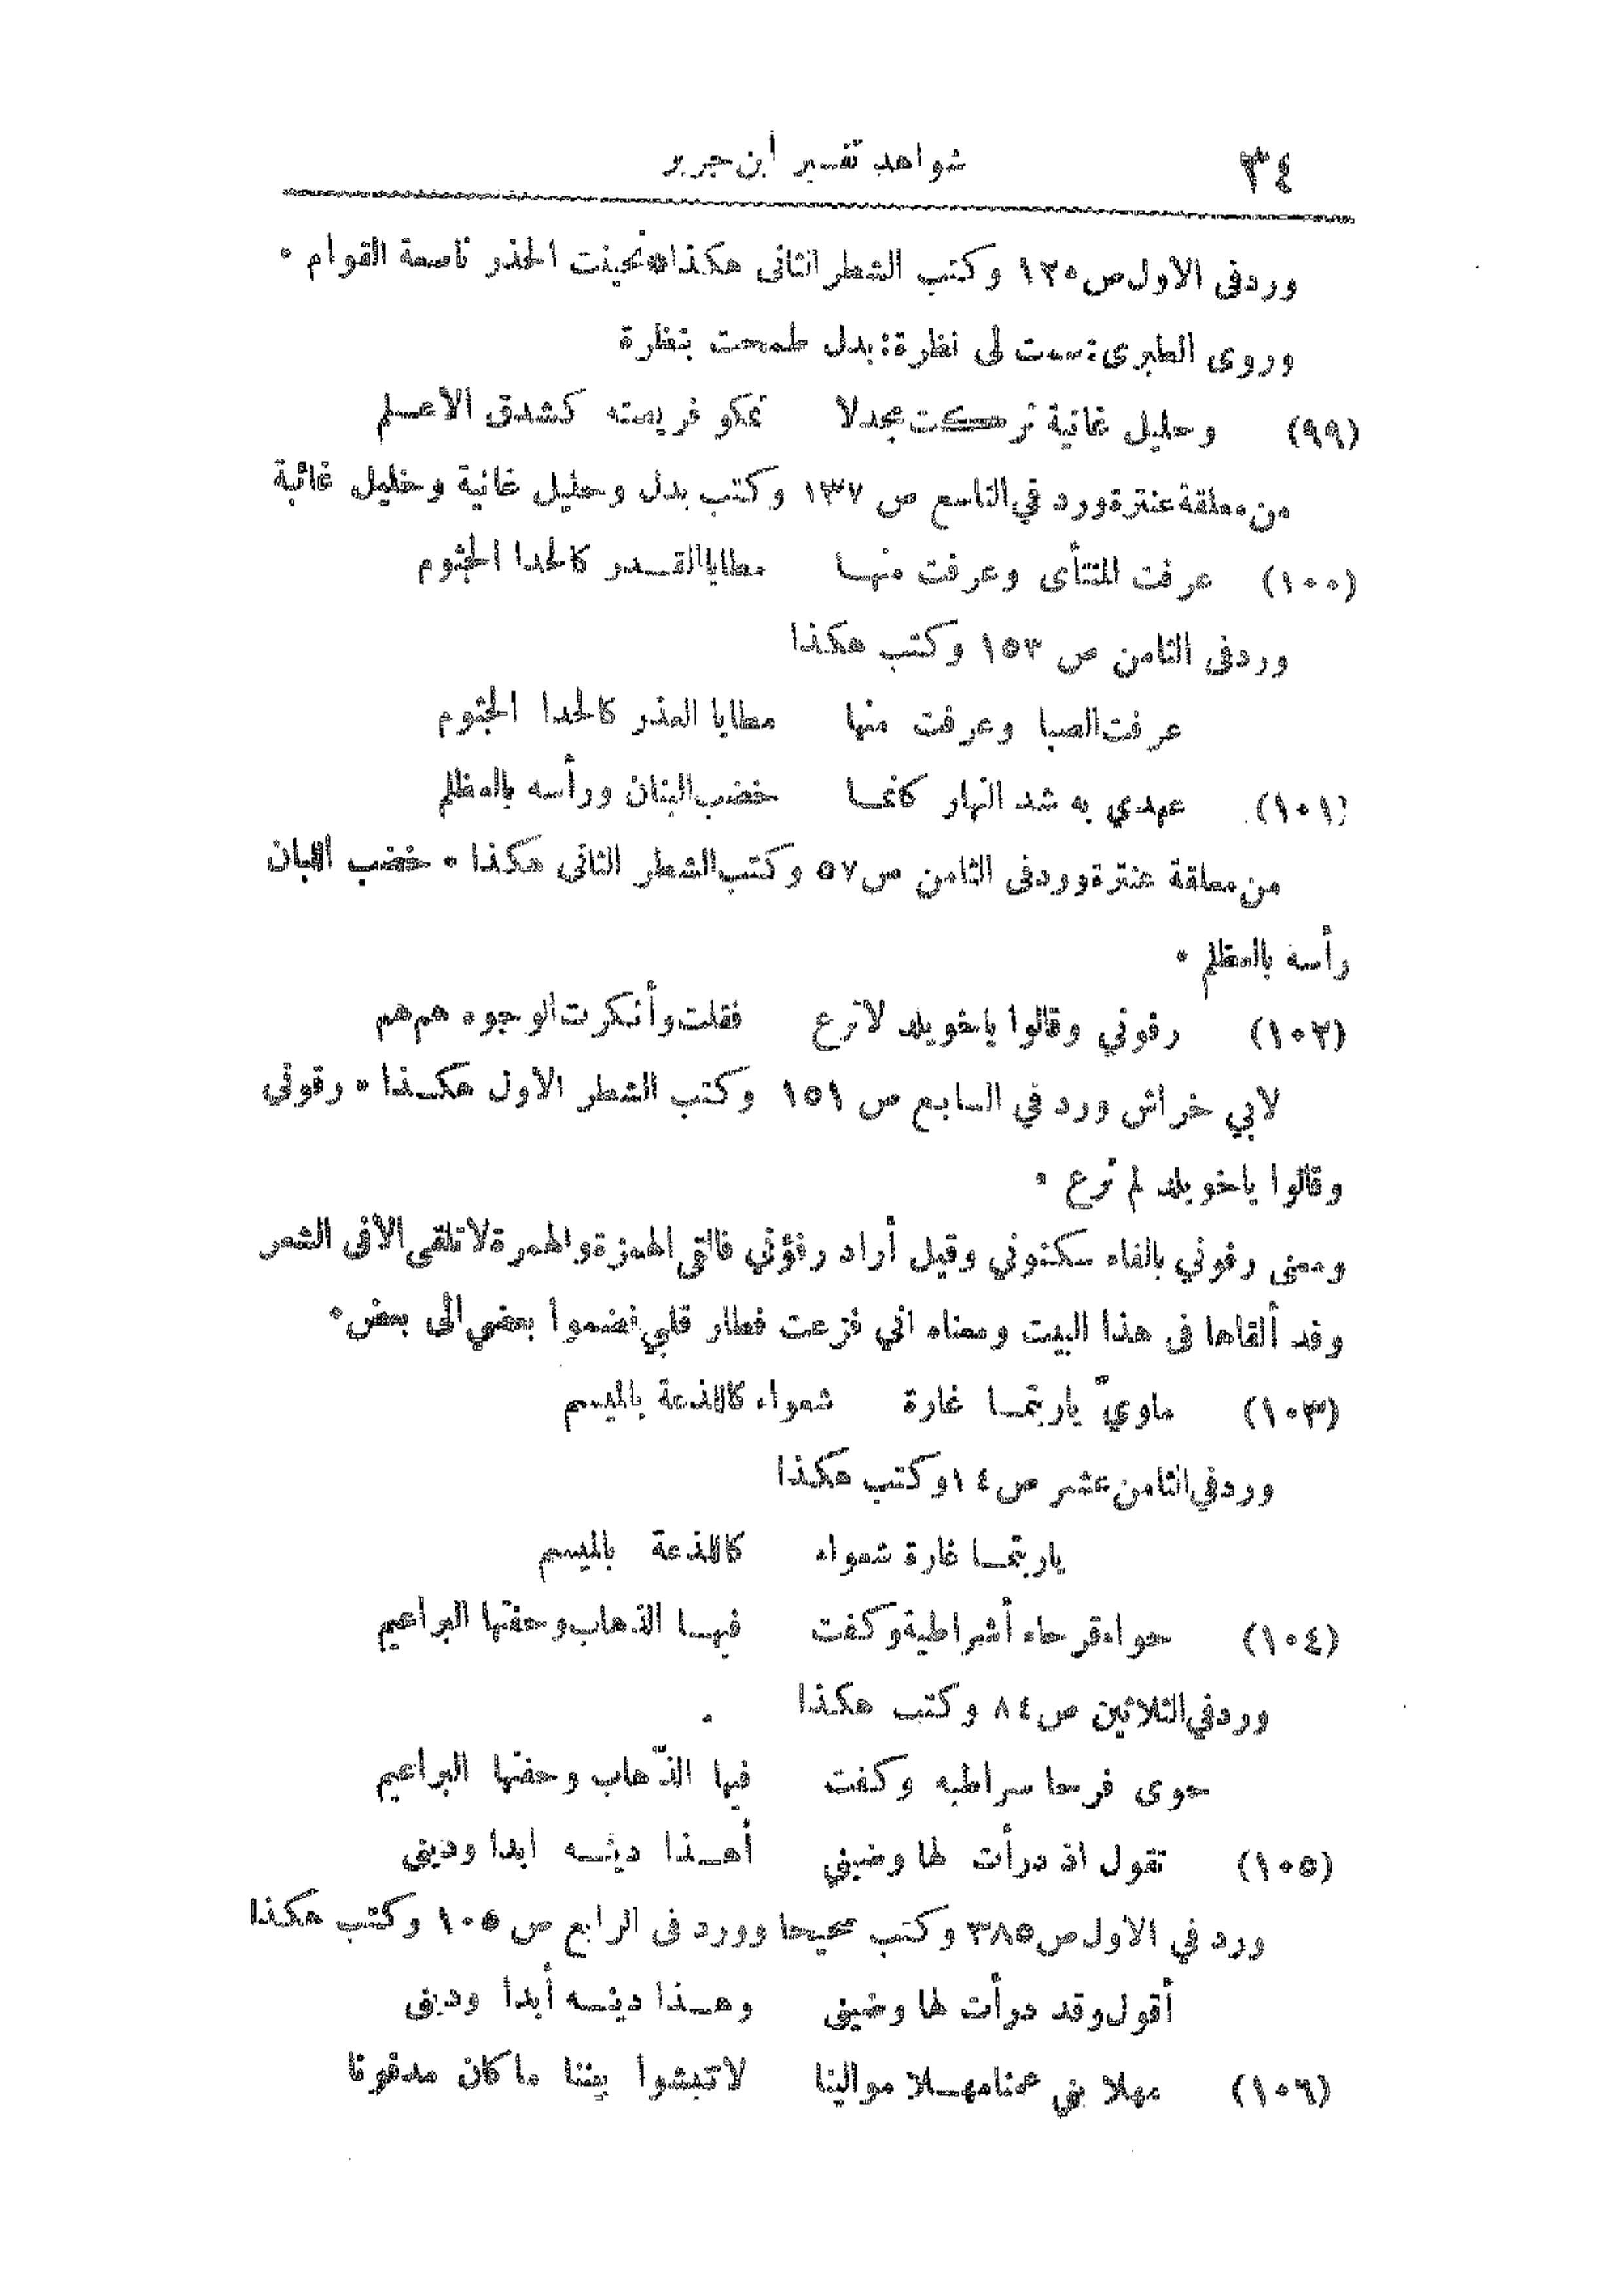 ٣٤ شواهد تفسير ابن جرير
ورد فى الاول ص ١٢٥ وكتب الشطر الثانى هكذا * نحيت الحذر ناسعة القوام *
وروى الطبرى: سمت لى نظرة: بدل طمحت بنظرة
(٩٩) وحليل غانية تركت مجدلا تمكو فريصته كشدق الاعلم
من معلقة عنترة ورد في التاسع ص ١٣٧ وكتب بدل وحليل غانية وخليل غائبة
(١٠٠) عرفت المنتأى وعرفت منها مطايا القدر كالحدا الجثوم
ورد فى الثامن ص ١٥٣ وكتب هكذا
عرفت الصبا وعرفت منها مطايا العذر كالحدا الجثوم
(١٠١) عهدي به شد النهار كانما خضب البنان ورأسه بالعظلم
من معلقة عنترة وورد فى الثامن ص ٥٧ وكتب الشطر الثانى هكذا * خضب اللبان
رأسه بالعظلم *
(١٠٢) رفوني وقالوا يا خويلد لا ترع فقلت وأنكرت الوجوه هم هم
لابي خراش ورد في السابع ص ١٥١ وكتب الشطر الاول هكذا * رقونى
وقالوا يا خويلد لم ترع *
ومعنى رفوني بالفاء سكنوني وقيل أراد رفؤني فالقى الهمزة والهمزة لا تلقى الا فى الشعر
وقد ألقاها فى هذا البيت ومعناه انى فزعت فطار قلبي فضموا بعضي الى بعض *
(١٠٣) ماويّ يا ربتما غارة شعواء كاللذعة بالميسم
ورد في الثامن عشر ص ١٤ وكتب هكذا
يا ربتما غارة شعواء كاللذعة بالميسم
(١٠٤) حواء قرحاء أشراطية وكفت فيها الذهاب وحفتها البراعيم
ورد في الثلاثين ص ٨٤ وكتب هكذا
حوى فرحا سراطبه وكفت فيها الذّهاب وحفتها البراعيم
(١٠٥) تقول اذ درأت لها وضيني أهذا دينه ابدا وديني
ورد في الاول ص ٣٨٥ وكتب صحيحا وورد فى الرابع ص ١٠٥ وكتب هكذا
أقول وقد درأت لها وضينى وهذا دينه أبدا ودينى
(١٠٦) مهلا بني عمنا مهلا موالينا لا تنبشوا بيننا ما كان مدفونا